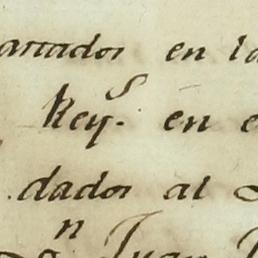 artados en la
Rey.s en e
dados al
n Juan